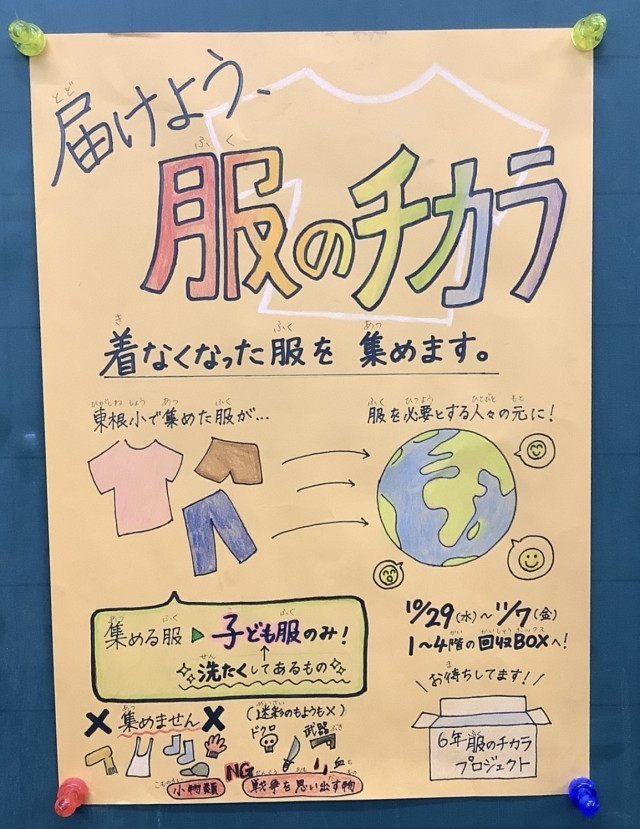 届けよう、
服のチカラ
着なくなった服を 集めます。
東根小で集めた服が…
服を必要とする人々の元に!
集める服▶子ども服のみ!
↑
洗たくしてあるもの
10/29(水)～11/7(金)
1～4階の回収BOXへ!
\お待ちしてます!/
6年服のチカラ
プロジェクト
✕集めません✕
(迷彩のもようも×)
ドクロ 武器 血
小物類 NG 戦争を思い出す物